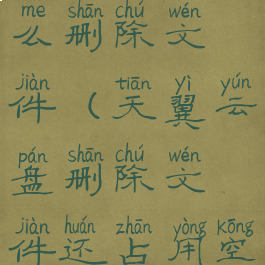 me shān chú wén
么 删 除 文
jiàn tiān yì yún
件 ( 天 翼 云
pán shān chú wén
盘 删 除 文
jiàn huán zhān yòng kōng
件 还 占 用 空